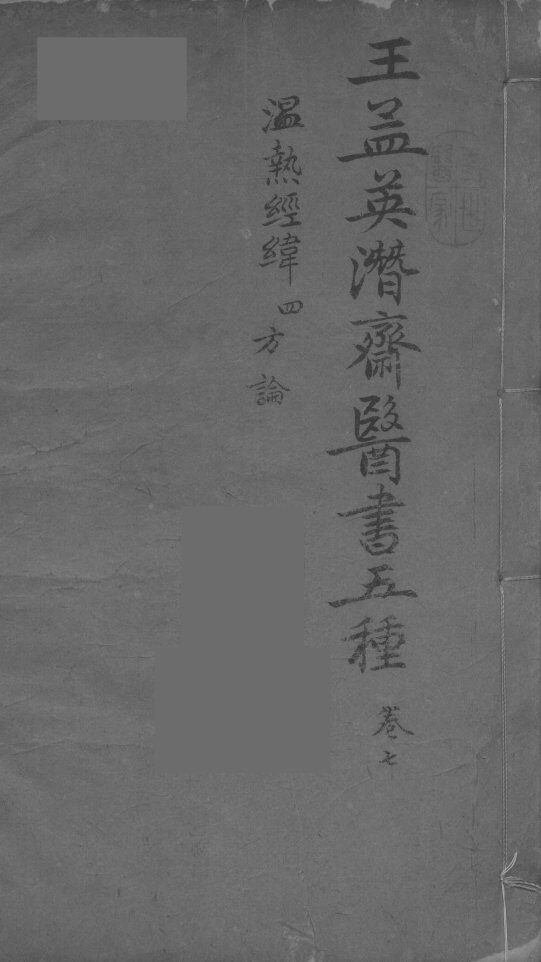 王益英潛齋醫書五種 卷七
溫熱經緯 四 方論